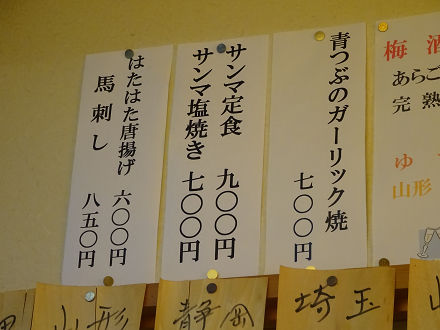 梅酒
あらご
完熟
ゆ
山形
青つぶのガーリック焼 七〇〇円
サンマ定食 九〇〇円
サンマ塩焼き 七〇〇円
はたはた唐揚げ 六〇〇円
馬刺し 八五〇円
埼玉
静岡
山形